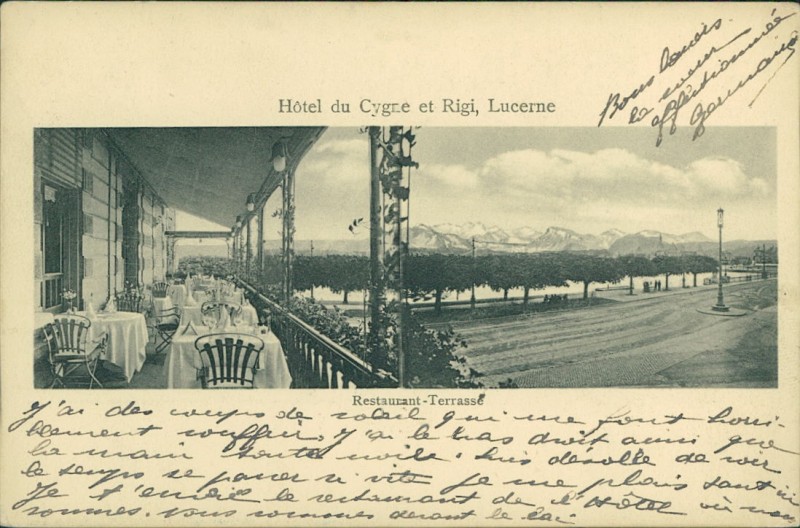 Bons baisers
ta sœur
affectionnée
Germaine
Hôtel du Cygne et Rigi, Lucerne
Restaurant-Terrasse
J'ai des coups de soleil qui me font horri-
blement souffrir. J'ai le bras droit ainsi que
la main toute noire. Suis désolée de voir
le temps se passer si vite je me plais tant ici
Je t'envoie le restaurant de l'Hôtel où nous
sommes. Nous sommes devant le lac.